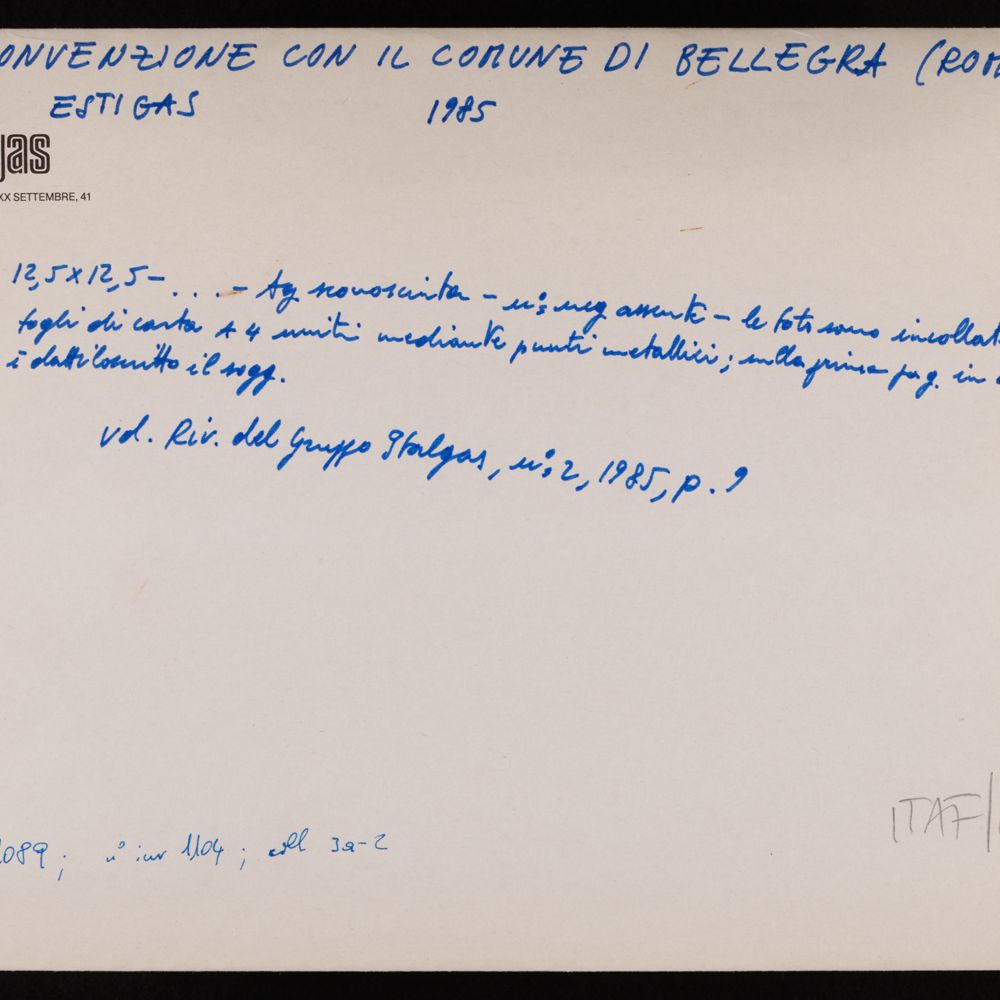 ONVENZIONE CON IL COMUNE DI BELLEGRA (ROM
ESTIGAS 1985
gas
XX SETTEMBRE, 41
12,5x12,5 - . . . - Ag sconosciuta - n° neg assente - le foto sono incollat
fogli di carta A4 uniti mediante punti metallici; sulla prima pag. in
è dattiloscritto il sogg.
vd. Riv. del Gruppo Italgas, n° 2, 1985, p. 9
1089; n° inv 1104; coll 3a-2
ITAF/